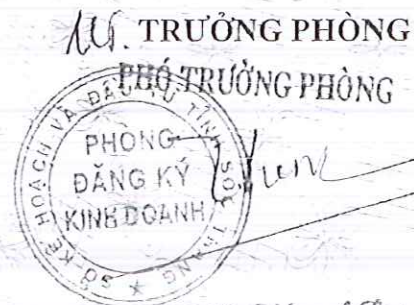 TRƯỞNG PHÒNG
PHÓ TRƯỞNG PHÒNG
SỞ KẾ HOẠCH VÀ ĐẦU TƯ TỈNH SÓC TRĂNG
PHÒNG
ĐĂNG KÝ
KINH DOANH